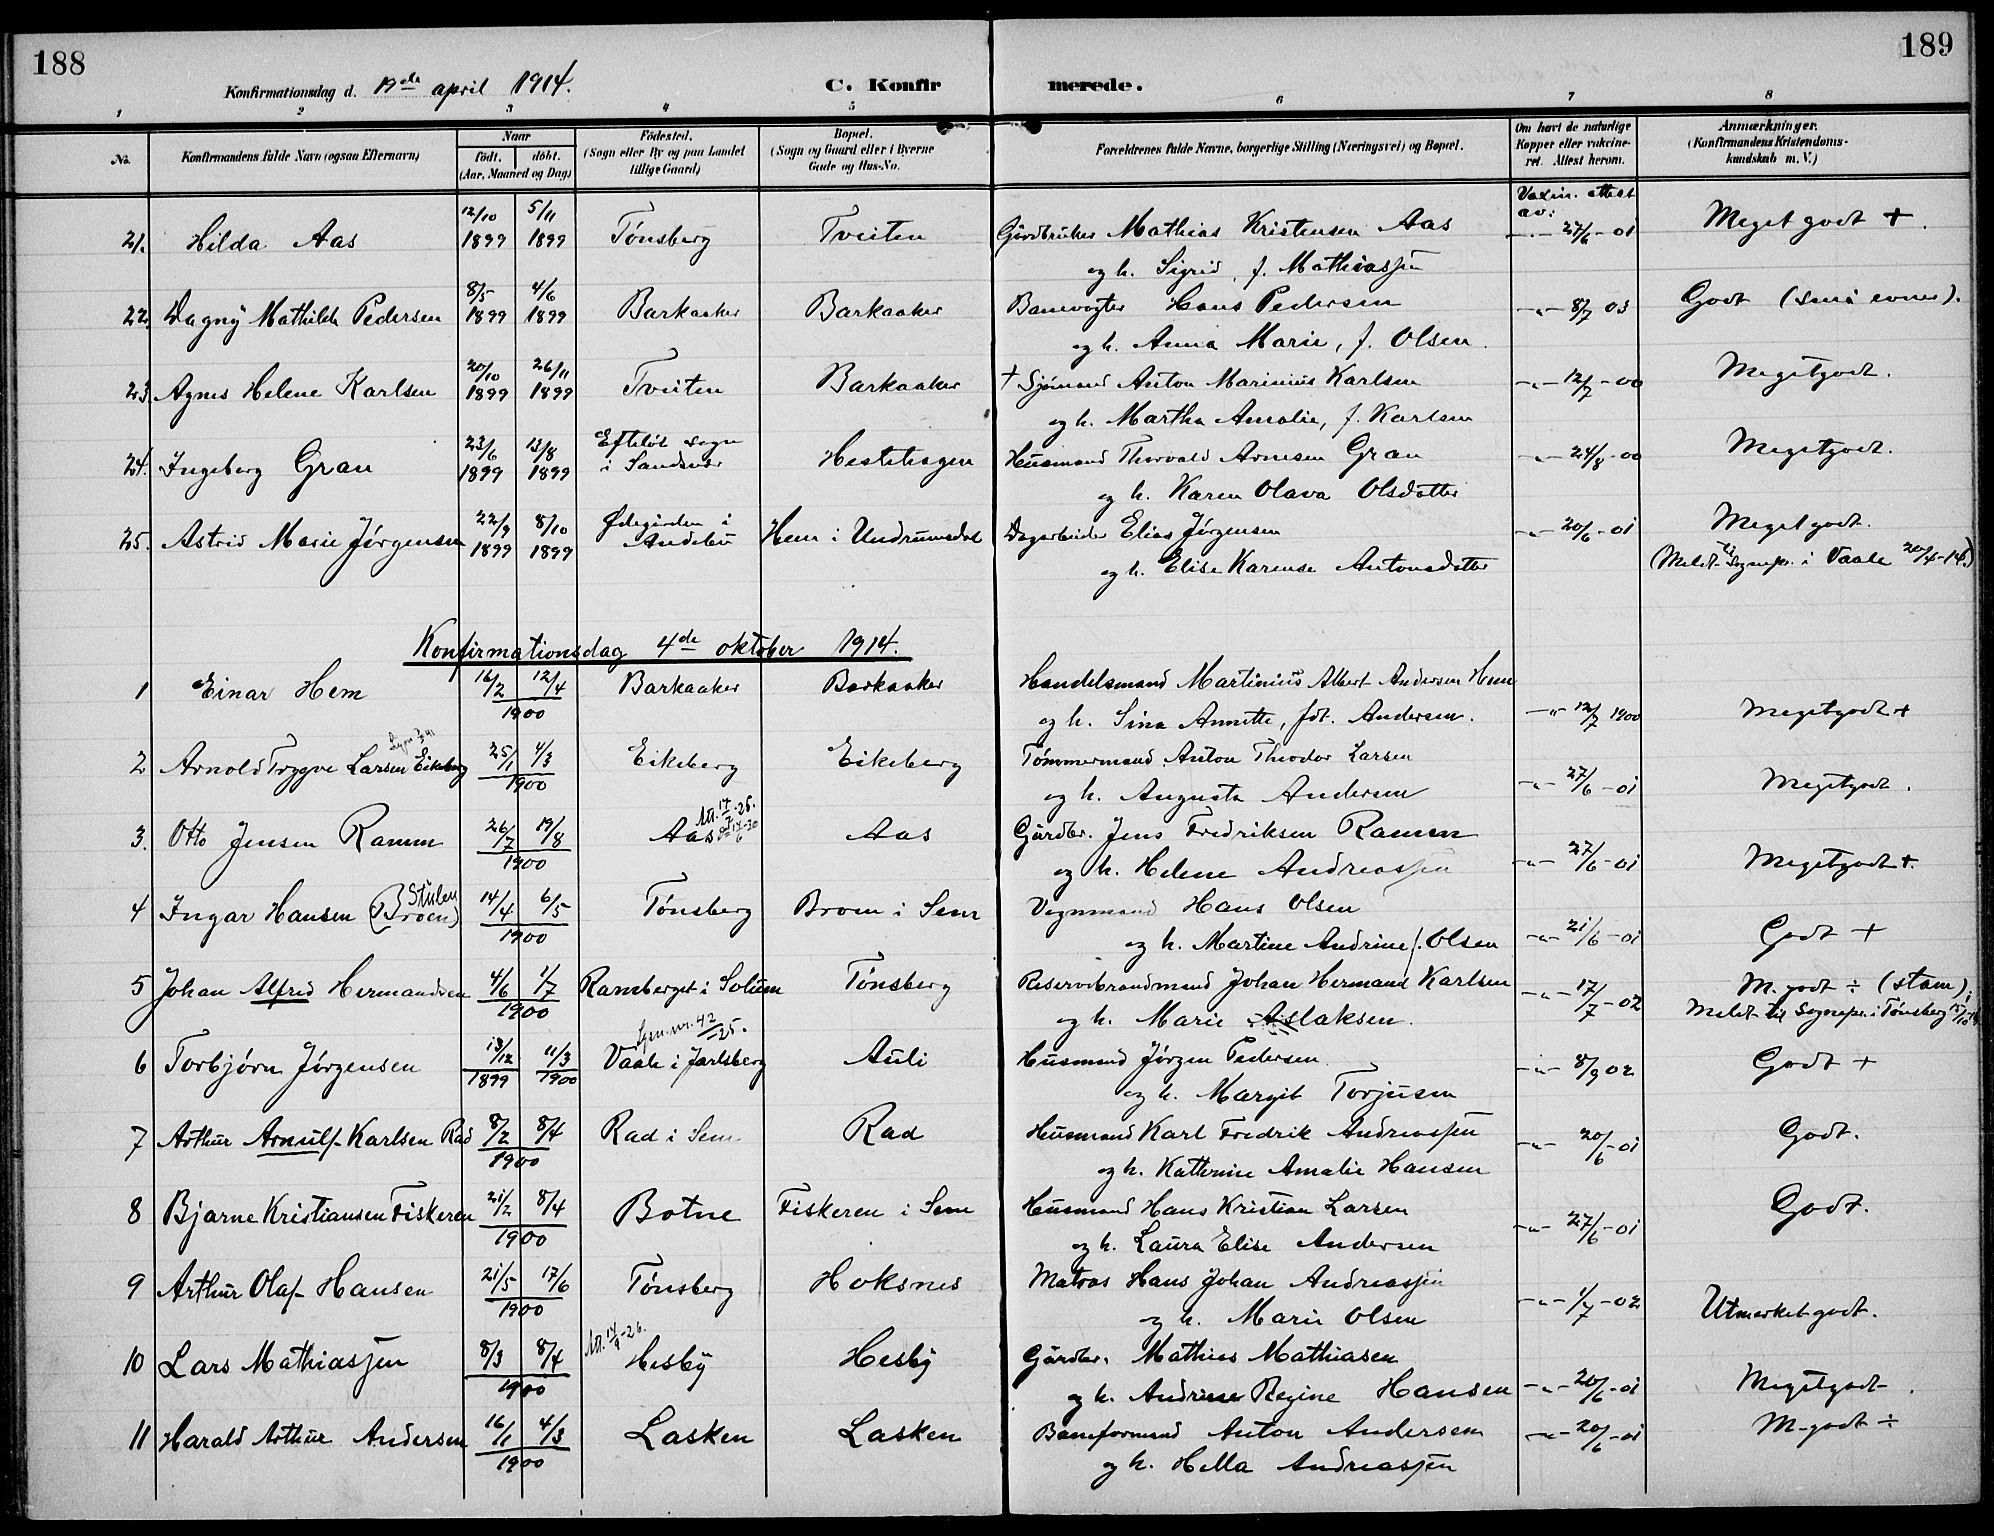 188
189
Konfirmationsdag d. 19de april 1914.
C. Konfir
merede.
1 2 3 4 5 6 7 8
No.
Konfirmandens fulde Navn (ogsaa Efternavn)
Naar
født. døbt.
(Aar, Maaned og Dag)
Fødested.
(Sogn eller By og paa Landet
tillige Gaard)
Bopæl.
(Sogn og Gaard eller i Byerne
Gade og Hus-No.
Forældrenes fulde Navne, borgerlige Stilling (Næringsvei) og Bopæl.
Om havt de naturlige
Kopper eller vakcine-
ret. Attest herom.
Anmærkninger.
(Konfirmandens Kristendoms-
kundskab m. V.)
Vaxin. attest
av:
21. Hilda Aas 12/10 1899 5/11 1899 Tønsberg Tveiten Gårdbruker Mathias Kristensen Aas -"- 27/6-01 Meget godt +.
og h. Sigrid, f. Mathiassen
22. Dagny Mathilde Pedersen 8/5 1899 4/6 1899 Barkaaker Barkaaker Banevogter Hans Pedersen -"- 8/7 03 Godt (små evner).
og h. Anna Marie, f. Olsen.
23. Agnes Helene Karlsen 20/10 1899 26/11 1899 Tveiten Barkaaker † Sjømand Anton Marinius Karlsen -"- 12/7-00 Megetgodt.
og h. Martha Amalie, f. Karlsen
24. Ingeborg Gran 23/6 1899 13/8 1899 Efteløt sogn
i Sandsvær Hestehagen Husmand Thorvald Arnesen Gran -"- 24/8-00 Megetgodt.
og h. Karen Olava Olsdatter
25. Astrid Marie Jørgensen 22/9 1899 8/10 1899 Ødegården i
Andebu Hem i Undrumsdal Dagarbeider Elias Jørgensen -"- 20/6-01 Megetgodt.
og h. Elise Karense Antonsdatter (Meldt til Sognepr. i Vaale 20/4-14.)
Konfirmationsdag 4de oktober 1914.
1 Einar Hem 16/2 12/4 1900 Barkaaker Barkaaker Handelsmand Martinius Albert Andersen Hem
og h. Sina Annette, fdt. Andersen. -"- 12/7 1900 Megetgodt +
2 Arnold Tryggve Larsen Eikeberg 25/1 4/3 1900 Eikeberg Eikeberg Tømmermand Anton Theodor Larsen
og h. Augusta Andersen -"- 27/6-01 Megetgodt.
3. Otto Jensen Ramm 26/7 19/8 1900 Aas Aas Gårdbr. Jens Fredriksen Ramm
og h. Helene Andreassen -"- 27/6-01 Megetgodt +.
4 Ingar Hansen (Broen) Stulen 14/4 6/5 1900 Tønsberg Broen i Sem Vognmand Hans Olsen
og h. Martine Andrine f. Olsen -"- 21/6-01 Godt +
5 Johan Alfred Hermandsen 4/6 1/7 1900 Ramberget i Solum Tønsberg Reservebrandmand Johan Hermand Karlsen M. godt ÷ (stam);
og h. Marie Aslaksen. -"- 17/7-02 Meldt til Sognepr. i Tønsberg
Lysn. nr. 42/25.
6 Torbjørn Jørgensen 13/12 1899 11/3 1900 Vaale i Jarlsberg Auli Husmand Jørgen Pedersen -"- 8/9 02 Godt +
og h. Margit Torjusen
7 Arthur Arnulf Karlsen Rad 8/2 8/4 1900 Rad i Sem Rad Husmand Karl Fredrik Andreassen -"- 20/6-01 Godt.
og h. Kathrine Amalie Hansen
8 Bjarne Kristiansen Fiskeren 21/2 8/4 1900 Botne Fiskeren i Sem Husmand Hans Kristian Larsen -"- 27/6-01 Godt.
og h. Laura Elise Andersen
9 Arthur Olaf Hansen 21/5 17/6 1900 Tønsberg Hoksnes Matros Hans Johan Andreassen
og h. Marie Olsen -"- 1/7-02 Utmerket godt.
10 Lars Mathiassen 8/3 8/4 1900 Hesby Hesby Gårdbr. Mathies Mathiasen
og h. Andrine Regine Hansen -"- 20/6-01 Megetgodt.
11 Harald Arthur Andersen 16/1 4/3 1900 Lasken Lasken Baneformand Anton Andersen -"- 20/6-01 M-godt ÷
og h. Hella Andreassen